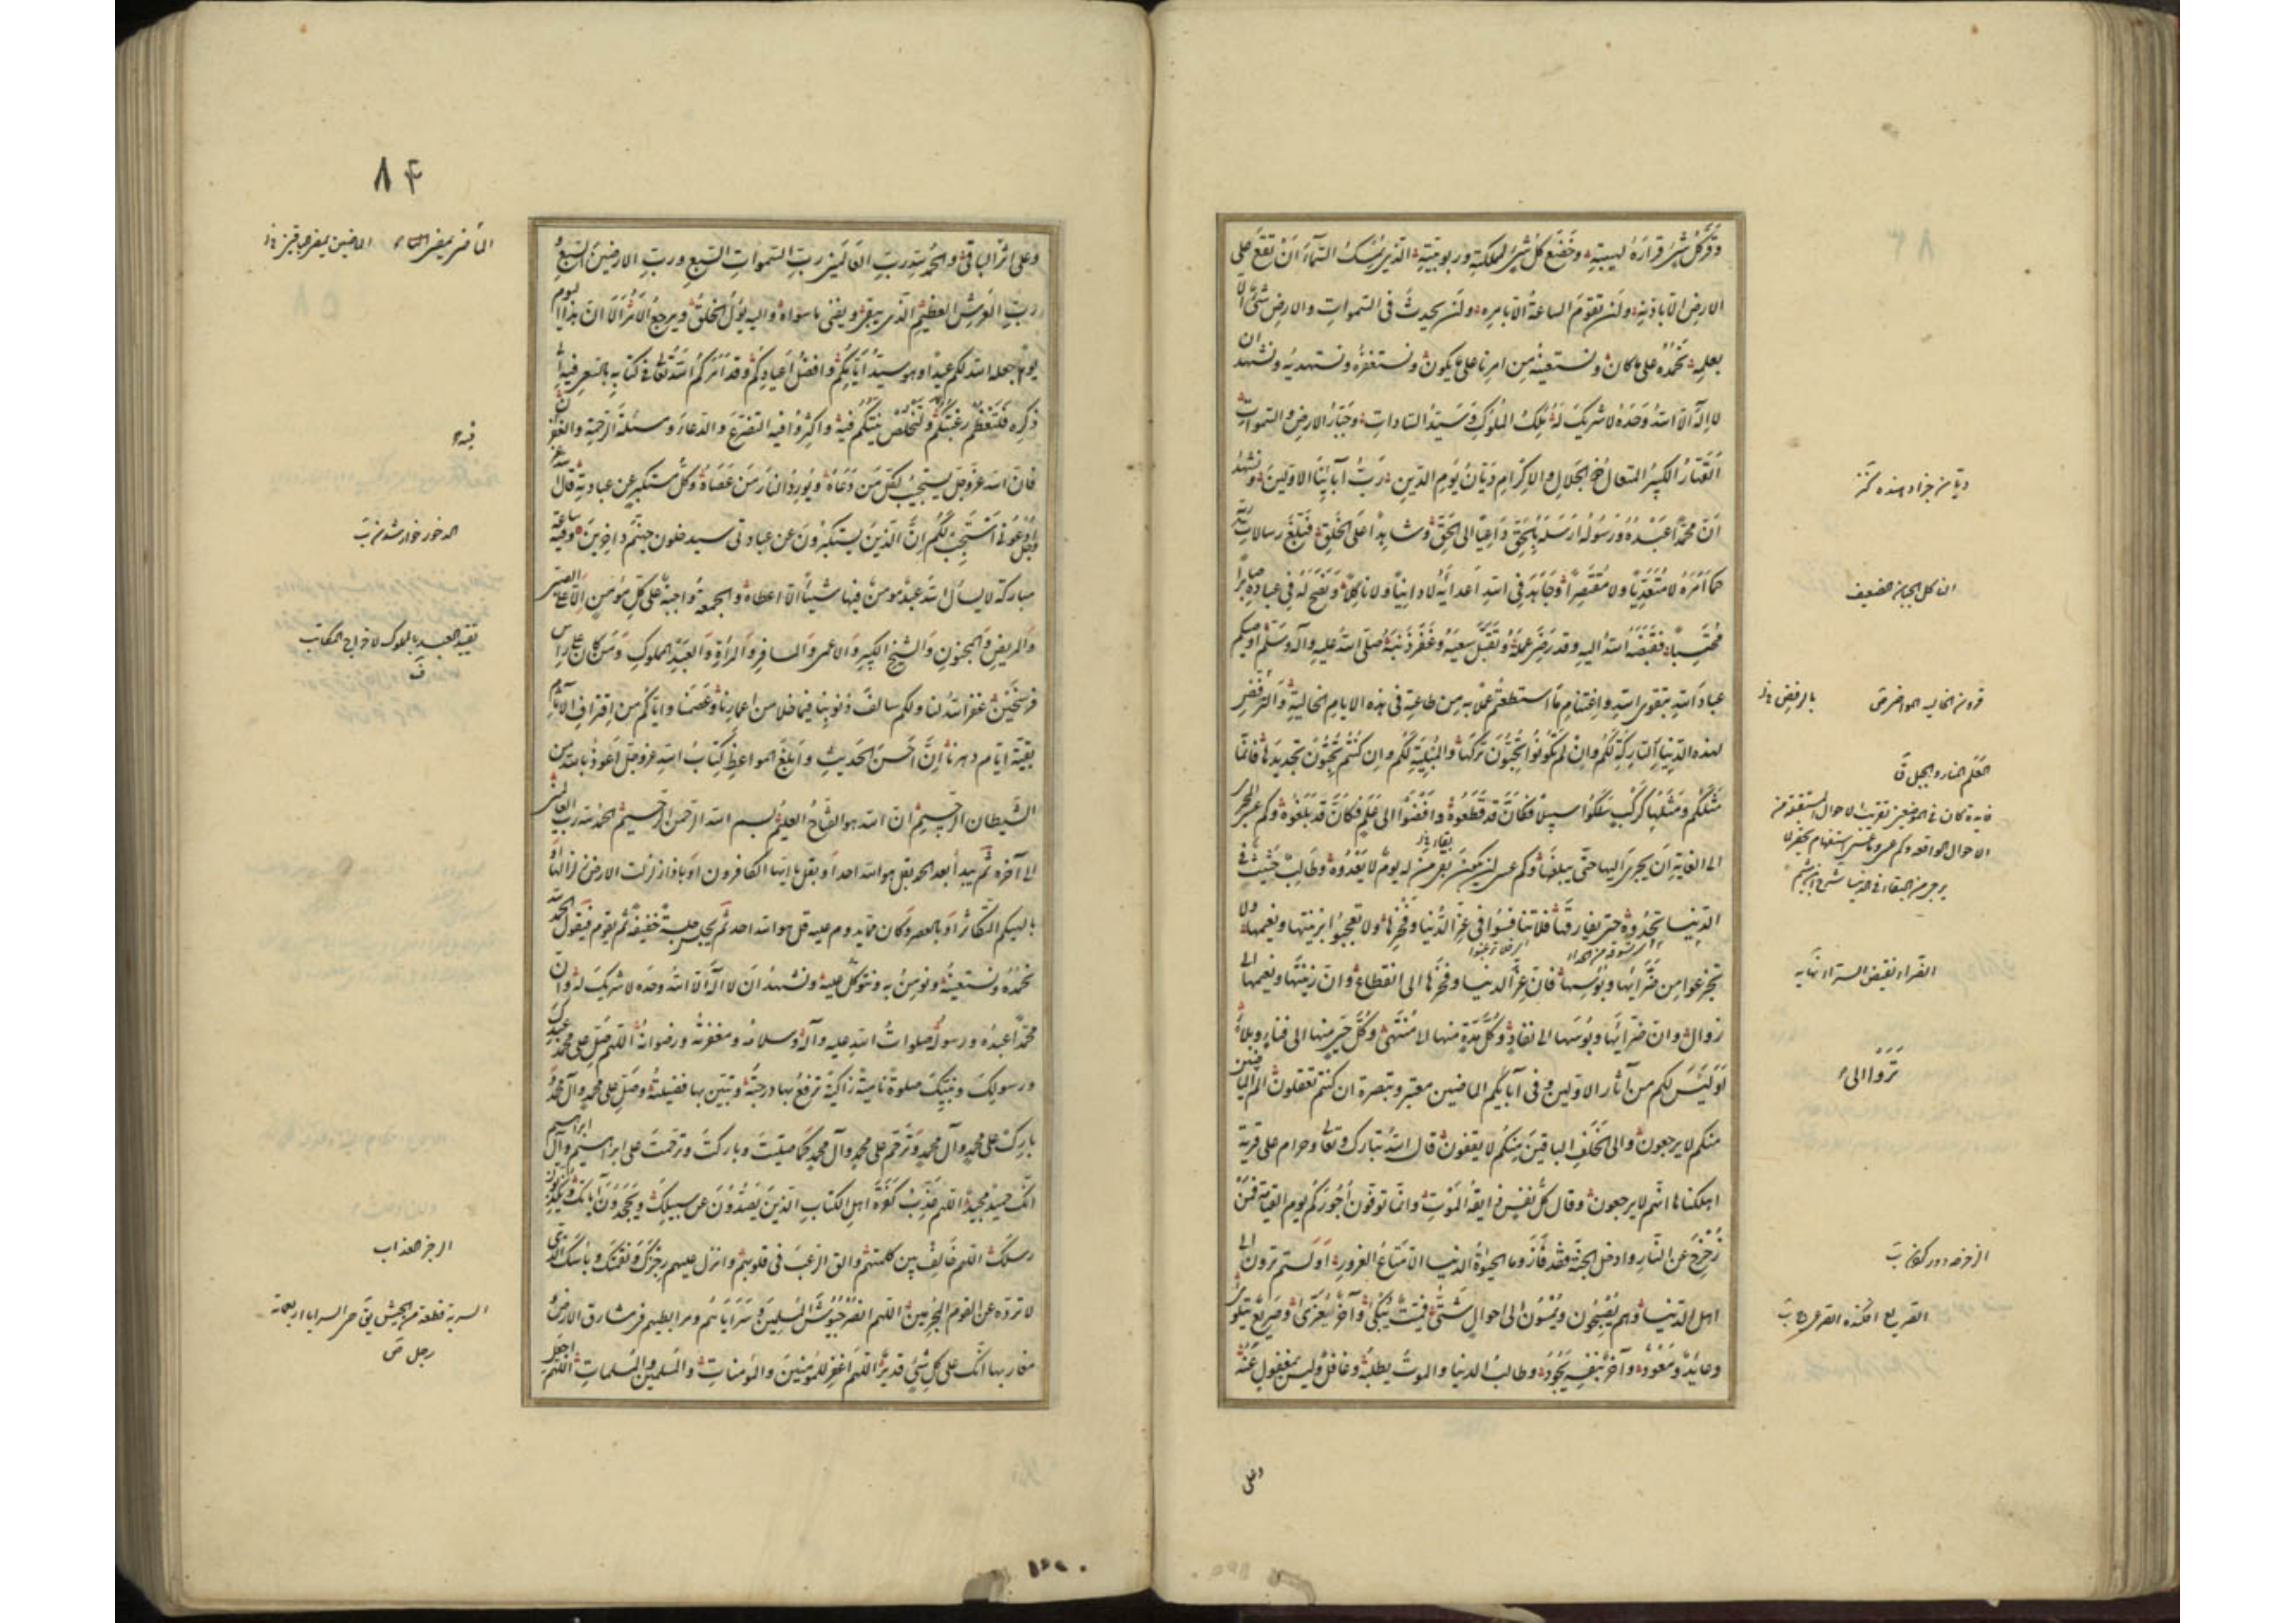 وقر كل شئ قراره لهيبته وخضع كل شئ لملكته وربوبيته الذي يمسك السماء أن تقع على
الارض الا باذنه ولن تقوم الساعة الا بامره ولن يحدث في السموات والارض شئ الا
بعلمه نحمده على ما كان ونستعينه من امرنا على ما يكون ونستغفره ونستهديه ونشهد ان
لا اله الا الله وحده لا شريك له ملك الملوك وسيد السادات وجبار الارض والسموات
القهار الكبير المتعال ذو الجلال والاكرام ديان يوم الدين رب آبائنا الاولين ونشهد
ان محمدا عبده ورسوله ارسله بالحق داعيا الى الحق وشاهدا على الخلق فبلغ رسالات ربه
كما امره لا متعديا ولا مقصرا وجاهد في الله اعداءه لا وانيا ولا ناكلا ونصح له في عباده صابرا
محتسبا فقبضه الله اليه وقد رضي عمله وتقبل سعيه وغفر ذنبه صلى الله عليه وآله وسلم اوصيكم
عباد الله بتقوى الله واغتنام ما استطعتم عملا به من طاعته في هذه الايام الخالية والرفض
لهذه الدنيا التاركة لكم وان لم تكونوا تحبون تركها والمبلية لكم وان كنتم تحبون تجديدها فانما
مثلكم ومثلها كركب سلكوا سبيلا فكان قد قطعوه وافضوا الى علم فكان قد بلغوه وكم عسى المجري
الى الغاية ان يجري اليها حتى يبلغها وكم عسى ان يكون بقاء من له يوم لا يعدوه وطالب حثيث في
الدنيا يحدوه حتى يفارقها فلا تنافسوا في عز الدنيا وفخرها ولا تعجبوا بزينتها ونعيمها ولا
تجزعوا من ضرائها وبؤسها فان عز الدنيا وفخرها الى انقطاع وان زينتها ونعيمها الى
زوال وان ضرائها وبؤسها الى نفاد وكل مدة منها الى منتهى وكل حي منها الى فناء وبلاء
اوليس لكم من آثار الاولين وفي آبائكم الماضين معتبر وتبصرة ان كنتم تعقلون الم تروا الى الماضين
منكم لا يرجعون والى الخلف الباقين منكم لا يقفون قال الله تبارك وتعالى وحرام على قرية
اهلكناها انهم لا يرجعون وقال كل نفس ذائقة الموت وانما توفون اجوركم يوم القيامة فمن
زحزح عن النار وادخل الجنة فقد فاز وما الحيوة الدنيا الا متاع الغرور اولستم ترون الى
اهل الدنيا وهم يصبحون ويمسون الى احوال شتى فميت يبكى وآخر يعزى وصريع يتلوى
وعائد ومعود وآخر بنفسه يجود وطالب الدنيا والموت يطلبه وغافل وليس بمغفول عنه
الناكل الجبان الضعيف
العلم المنار والجبل ق
الضراء نقيض السراء نهايه
تروا الى
وعلى
٨٤
وعلى اثر الباقي والحمد لله رب العالمين رب السموات السبع ورب الارضين السبع و
رب العرش العظيم الذي يبقى ويفنى ما سواه واليه يؤل الخلق ويرجع الامر الا ان هذا اليوم
يوم جعله الله لكم عيدا وهو سيد ايامكم وافضل اعيادكم وقد امركم الله تعالى في كتابه بالسعي فيه الى
ذكره فلتعظم رغبتكم ولتخلص نيتكم فيه واكثروا فيه التضرع والدعاء ومسئلة الرحمة والغفران
فان الله عز وجل يستجيب لكل من دعاه ويورد النار من عصاه وكل مستكبر عن عبادته قال الله عز
وجل ادعوني استجب لكم ان الذين يستكبرون عن عبادتي سيدخلون جهنم داخرين وفيه ساعة
مباركة لا يسأل الله عبد مؤمن فيها شيئا الا اعطاه والجمعة واجبة على كل مؤمن الا على الصبي
والمريض والمجنون والشيخ الكبير والاعمى والمسافر والمرأة والعبد المملوك ومن كان على راس
فرسخين غفر الله لنا ولكم سالف ذنوبنا فيما خلا من اعمارنا وعصمنا واياكم من اقتراف الآثام
بقية ايام دهرنا ان احسن الحديث وابلغ المواعظ كتاب الله عز وجل اعوذ بالله من
الشيطان الرجيم ان الله هو الفتاح العليم بسم الله الرحمن الرحيم الحمد لله رب العالمين
الى آخره ثم يبدأ بعد الحمد بقل هو الله احد او بقل يا ايها الكافرون او باذا زلزلت الارض زلزالها او
بالهيكم التكاثر او بالعصر وكان مما يدوم عليه قل هو الله احد ثم يجلس جلسة خفيفة ثم يقوم فيقول الحمد لله
نحمده ونستعينه ونؤمن به ونتوكل عليه ونشهد ان لا اله الا الله وحده لا شريك له وان
محمدا عبده ورسوله صلوات الله عليه وآله وسلامه ومغفرته ورضوانه اللهم صل على محمد عبدك
ورسولك ونبيك صلوة نامية زاكية ترفع بها درجته وتبين بها فضيلته وصل على محمد وآل محمد و
بارك على محمد وآل محمد وترحم على محمد وآل محمد كما صليت وباركت وترحمت على ابراهيم وآل ابراهيم
انك حميد مجيد اللهم عذب كفرة اهل الكتاب الذين يصدون عن سبيلك ويجحدون آياتك ويكذبون
رسلك اللهم خالف بين كلمتهم والق الرعب في قلوبهم وانزل عليهم رجزك ونقمتك وبأسك الذي
لا ترده عن القوم المجرمين اللهم انصر جيوش المسلمين وسراياهم ومرابطيهم في مشارق الارض و
مغاربها انك على كل شئ قدير اللهم اغفر للمؤمنين والمؤمنات والمسلمين والمسلمات اللهم اجعل
فيه
الرجز العذاب
السرية قطعة من الجيش
رجل ص